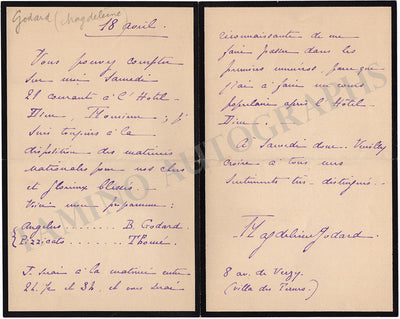 Godard (Magdeleine
18 avril.
Vous pouvez compter
sur moi Samedi
21 courant à l'Hotel-
Dieu, Monsieur ; je
suis toujours à la
disposition des matinées
nationales pour nos chers
et glorieux blessés.
Voici mon programme :
Angelus ....... B. Godard
Pizzicato ...... Thomé.
Je serai à la matinée entre
2h. ½ et 3h, et vous serai
reconnaissante de me
faire passer dans les
premiers numéros, parce que
j'ai à faire un cours
populaire après l'Hotel-
Dieu.
A Samedi donc. Veuillez
croire à tous mes
sentiments très distingués.
Magdeleine Godard
8 av. de
(villa des
TAMINO AUTOGRAPHS